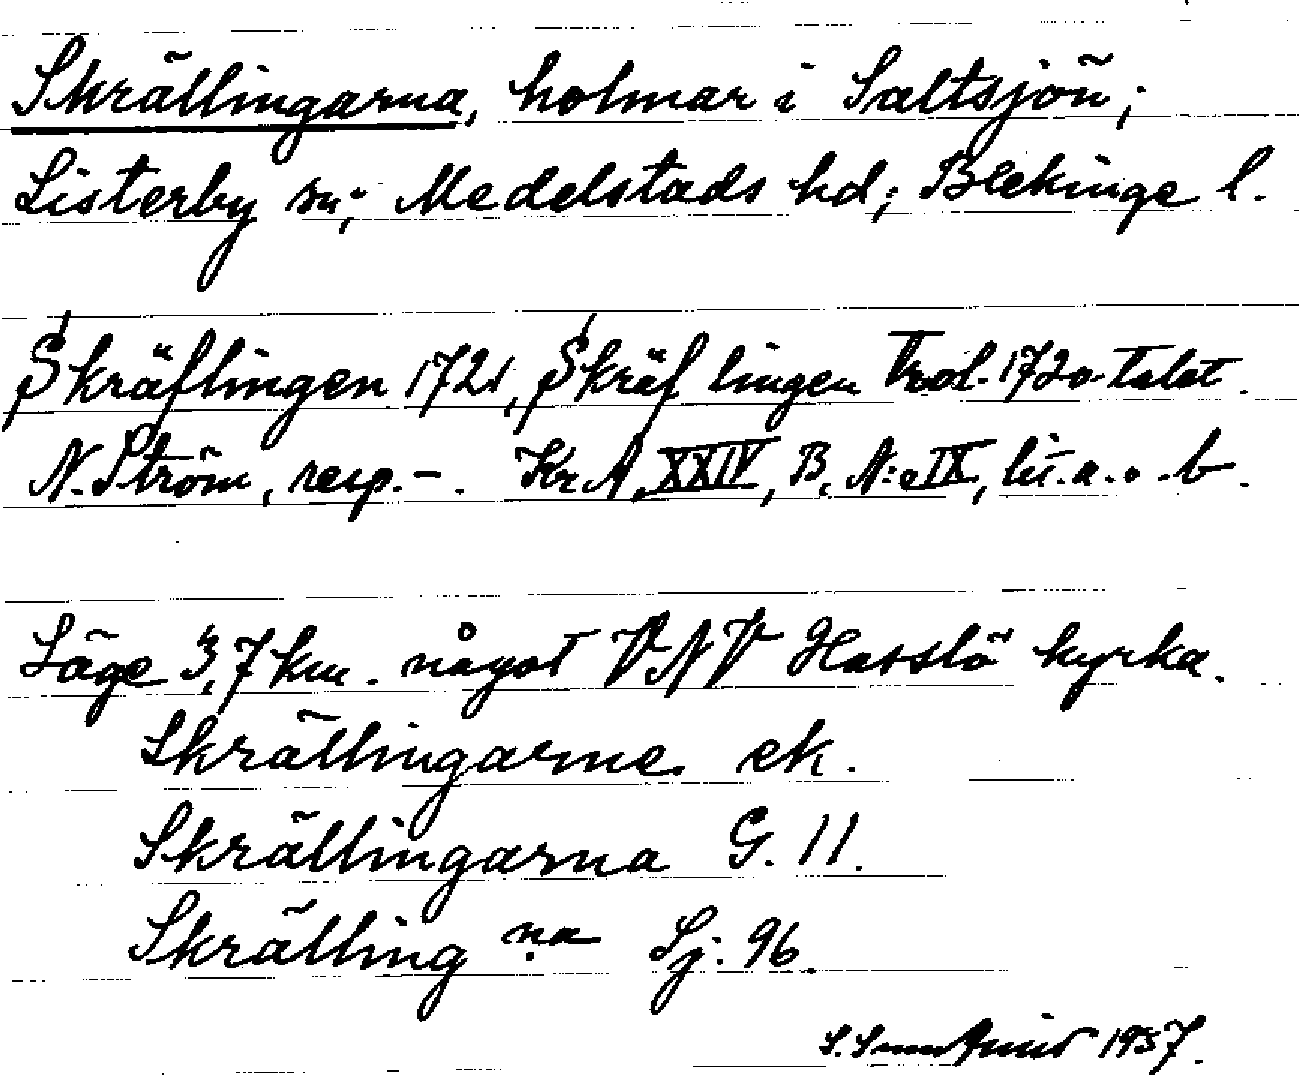 Skrällingarna, holmar i Saltsjön;
Listerby sn; Medelstads hd; Blekinge l.
Skräflingen 1721, Skräflingen Trol. 1720-talet.
N. Ström, resp. -. KrA, XXIV, B, N:o IX, lit. a. o. b.
Läge 3,7 km. något VNV Hasslö kyrka.
Skrällingarne. ek.
Skrällingarna G. 11.
Skrälling na Sj. 96.
S. 1957.